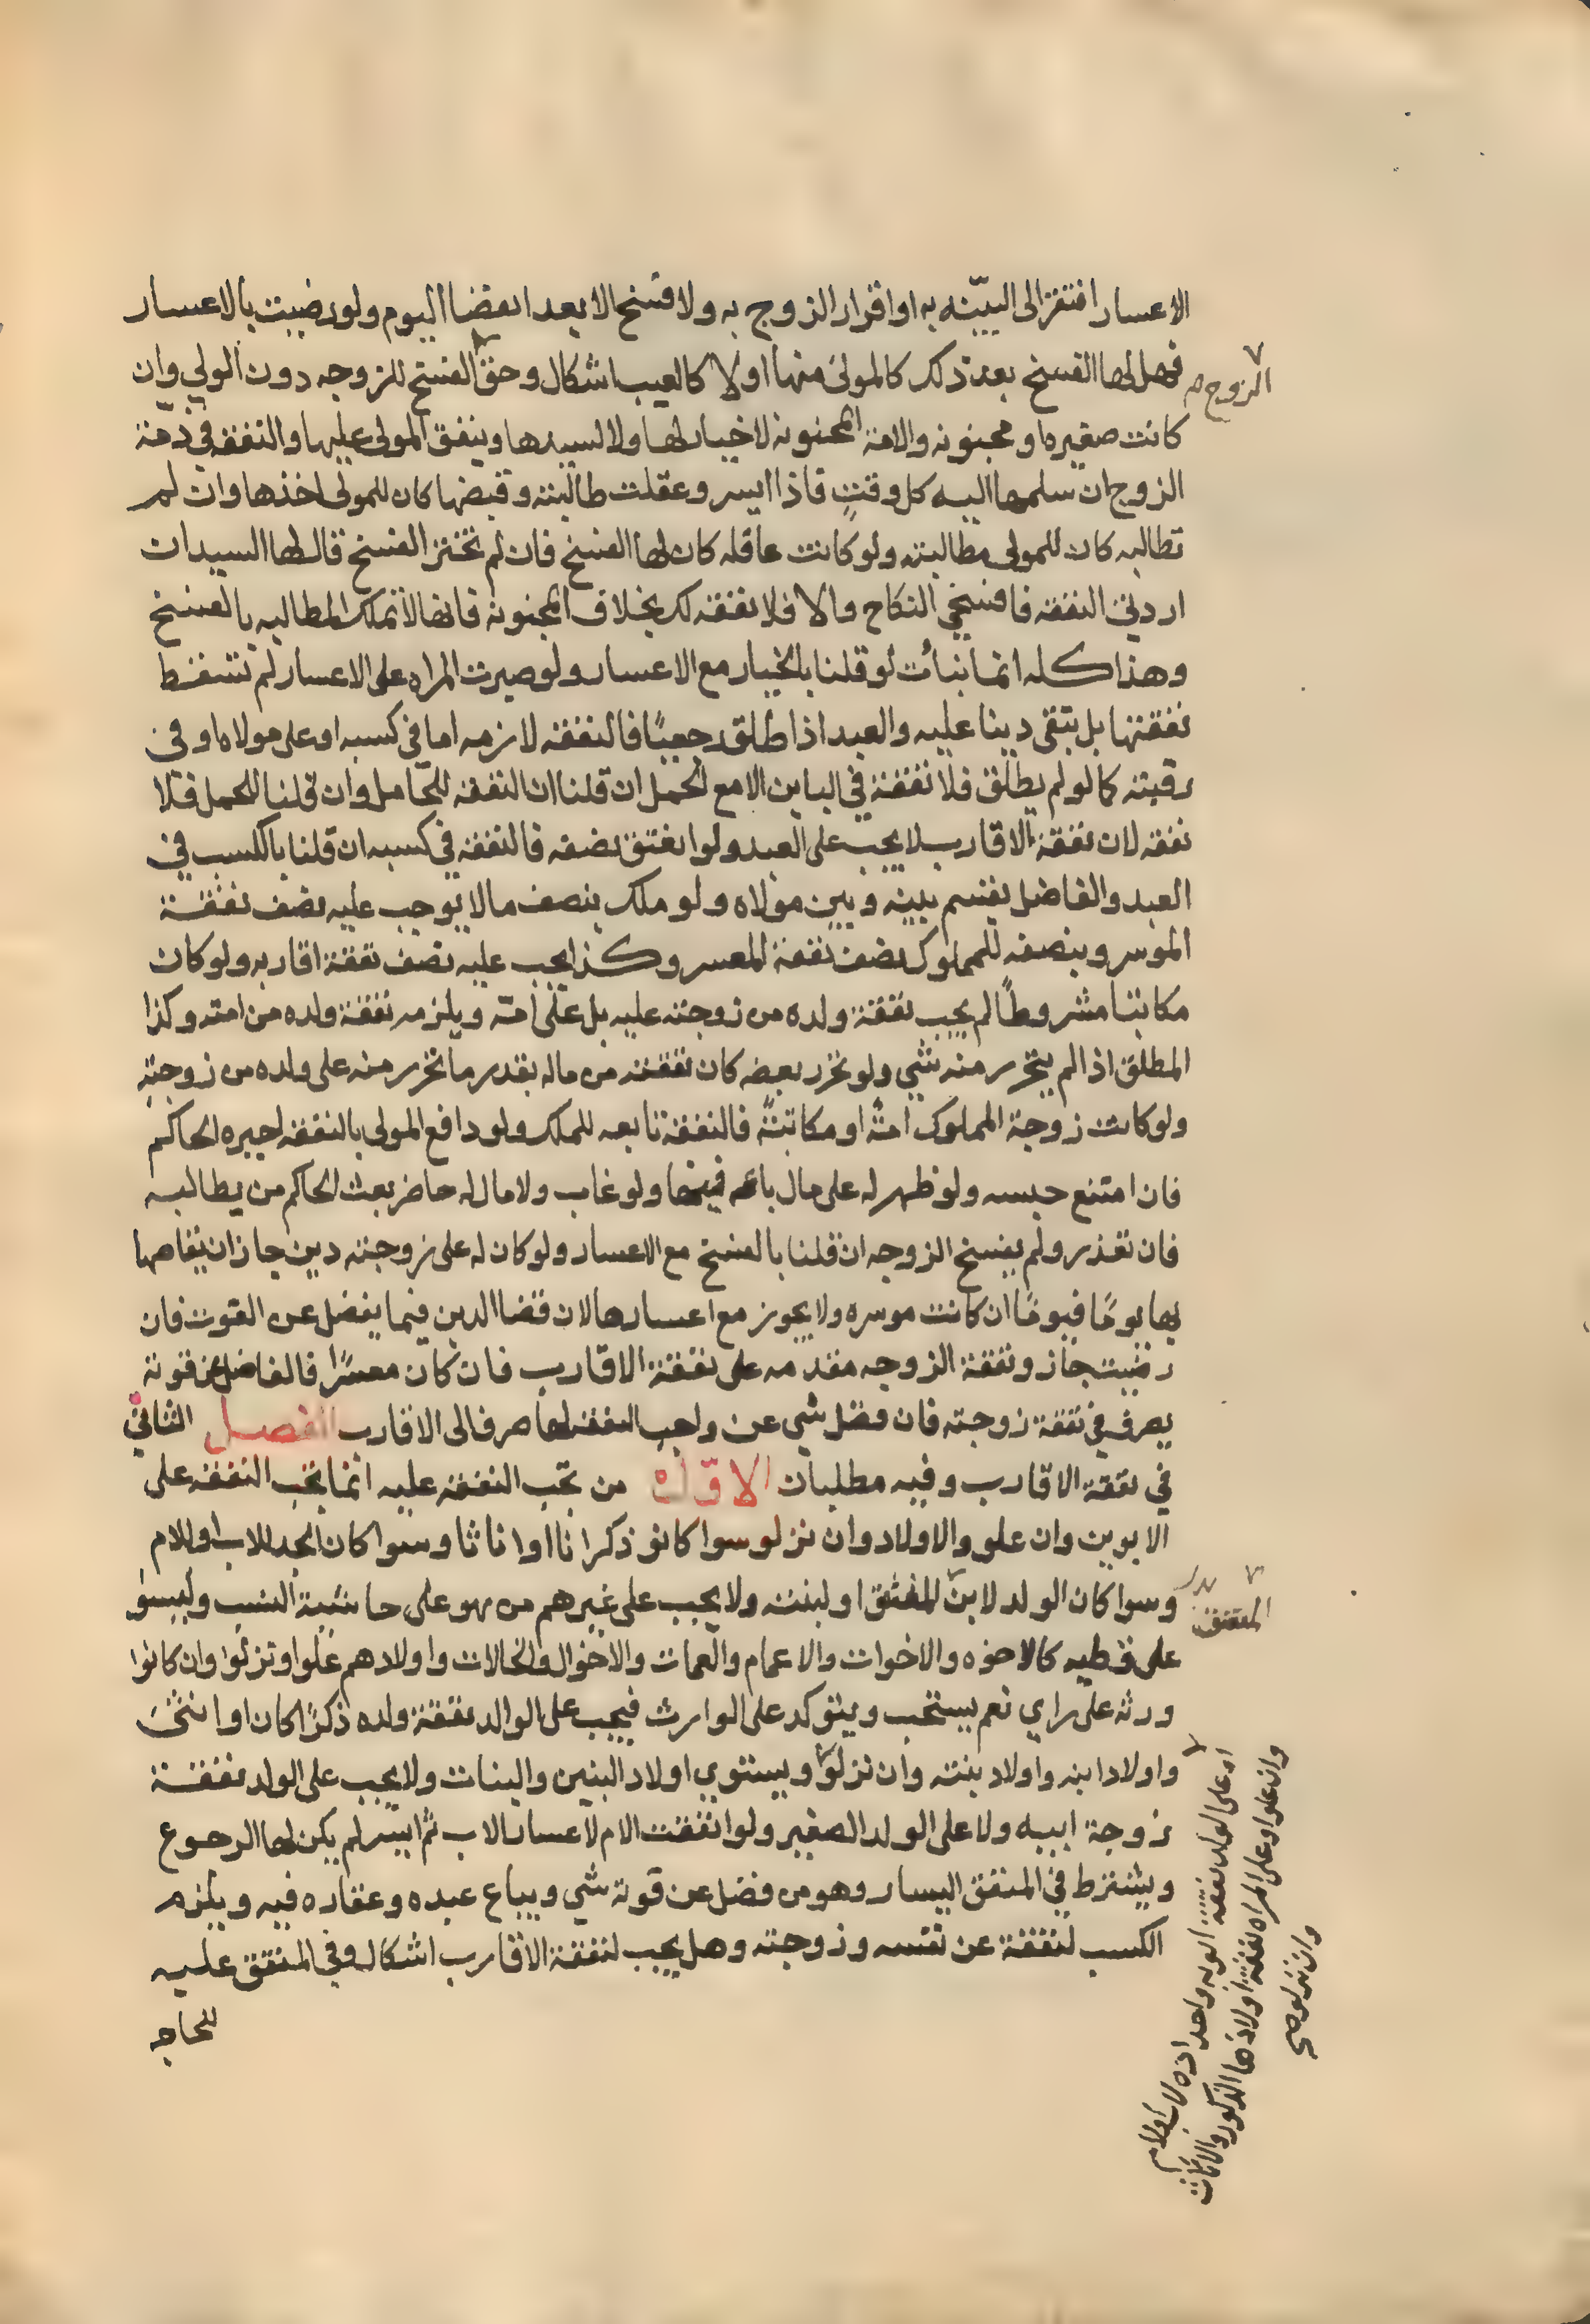 الاعسار افتقر الى البيّنه به او اقرار الزوج به ولا فسخ الا بعد انقضا اليوم ولو رضيت بالاعسار
فهل لها الفسخ بعد ذلك كالمولى منها او لا كالعيب اشكال وحق الفسخ للزوجه دون الولي وان
كانت صغيره او مجنونه والامة المجنونه لا خيار لها ولا لسيدها وينفق المولى عليها والنفقه في ذمة
الزوج ان سلمها اليه كل وقتٍ فاذا ايسر وعقلت طالبته وقبضها كان للمولى اخذها وان لم
تطالبه كان للمولى مطالبته ولو كانت عاقله كان لها الفسخ فان لم تختر الفسخ قال لها السيد ان
اردتي النفقه فافسخي النكاح والا فلا نفقه لك بخلاف المجنونه فانها لا تملك المطالبه بالفسخ
وهذا كله انما يتأت لو قلنا بالخيار مع الاعسار ولو صبرت المراه على الاعسار لم تسقط
نفقتها بل تبقى دينا عليه والعبد اذا طلق رجعيًا فالنفقه لازمه اما في كسبه او على مولاه او في
رقبته كما لو لم يطلق فلا نفقة في الباين الا مع الحمل ان قلنا ان النفقه للحامل وان قلنا للحمل فلا
نفقه لان نفقة الاقارب لا يجب على العبد ولو انعتق نصفه فالنفقه في كسبه ان قلنا بالكسب في
العبد والفاضل يقسم بينه وبين مولاه ولو ملك بنصفه ما لا يوجب عليه نصف نفقة
الموسر وبنصفه للمملوك نصف نفقة المعسر وكذا يجب عليه نصف نفقة اقاربه ولو كان
مكاتبا مشروطًا لم يجب نفقة ولده من زوجته عليه بل على امه ويلزمه نفقة ولده من امته وكذا
المطلق اذا لم يتحرر منه شي ولو تحرر بعضه كان نفقته من ماله بقدر ما تحرر منه على ولده من زوجته
ولو كانت زوجة المملوك امتًه او مكاتبتًه فالنفقة تابعه للملك ولو دافع المولى بالنفقه اجبره الحاكم
فان امتنع حبسه ولو ظهر له على مال باعه فيها ولو غاب ولا مال له حاضر بعث الحاكم من يطالبه
فان تعذر ولم يفسخ الزوجه ان قلنا بالفسخ مع الاعسار ولو كان له على زوجته دين جاز ان يقاصها
بها يومًا فيومًا ان كانت موسره ولا يجوز مع اعسارها لان قضا الدين فيما يفضل عن القوت فان
رضيت جاز ونفقة الزوجه مقدمه على نفقة الاقارب فان كان معسرًا فالفاضل عن قوته
يصرف في نفقة زوجته فان فضل شي عن واجب النفقه لها صرف الى الاقارب الفصل الثاني
في نفقة الاقارب وفيه مطلبان الاوّل من تجب النفقه عليه انما يجب النفقه على
الابوين وان علو والاولاد وان نزلو سوا كانو ذكرانا او اناثا وسوا كان الجد للاب او للام
وسوا كان الولد لابن المنفق او لبنته ولا يجب على غيرهم من هو على حاشية النسب وليسو
على قطبه كالاخوه والاخوات والاعمام والعمات والاخوال والخالات واولادهم علوا او نزلوا وان كانوا
ورثه على راي نعم يستحب ويتوكد على الوارث فيجب على الوالد نفقة ولده ذكرًا كان او انثى
واولاد ابنه واولاد بنته وان نزلوا ويستوي اولاد البنين والبنات ولا يجب على الولد نفقة
زوجة ابيه ولا على الولد الصغير ولو انفقت الام لاعسار الاب ثم ايسر لم يكن لها الرجوع
ويشترط في المنفق اليسار وهو من فضل عن قوته شي ويباع عبده وعقاره فيه ويلزمه
الكسب لنفقة عن نفسه وزوجته وهل يجب لنفقة الاقارب اشكال وفي المنفق عليه
للحاجه
الزوج م
المنفق
او على الولد نفقة ابويه واجداده لاب او لام
وان علوا وعلى المراه نفقة اولادها الذكور والاناث
وان نزلو صح